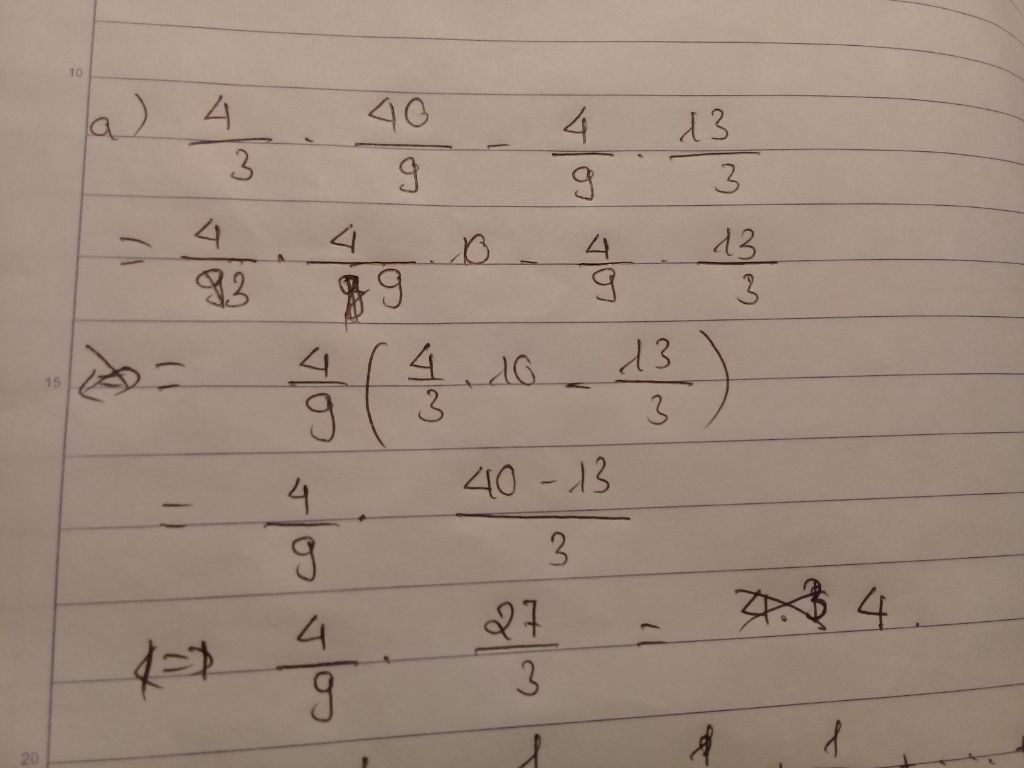 10
a) 4/3 . 40/9 - 4/9 . 13/3
= 4/3 . 4/9 . 10 - 4/9 . 13/3
15
= 4/9 ( 4/3 . 10 - 13/3 )
= 4/9 . 40 - 13/3
= 4/9 . 27/3 = 4.
20